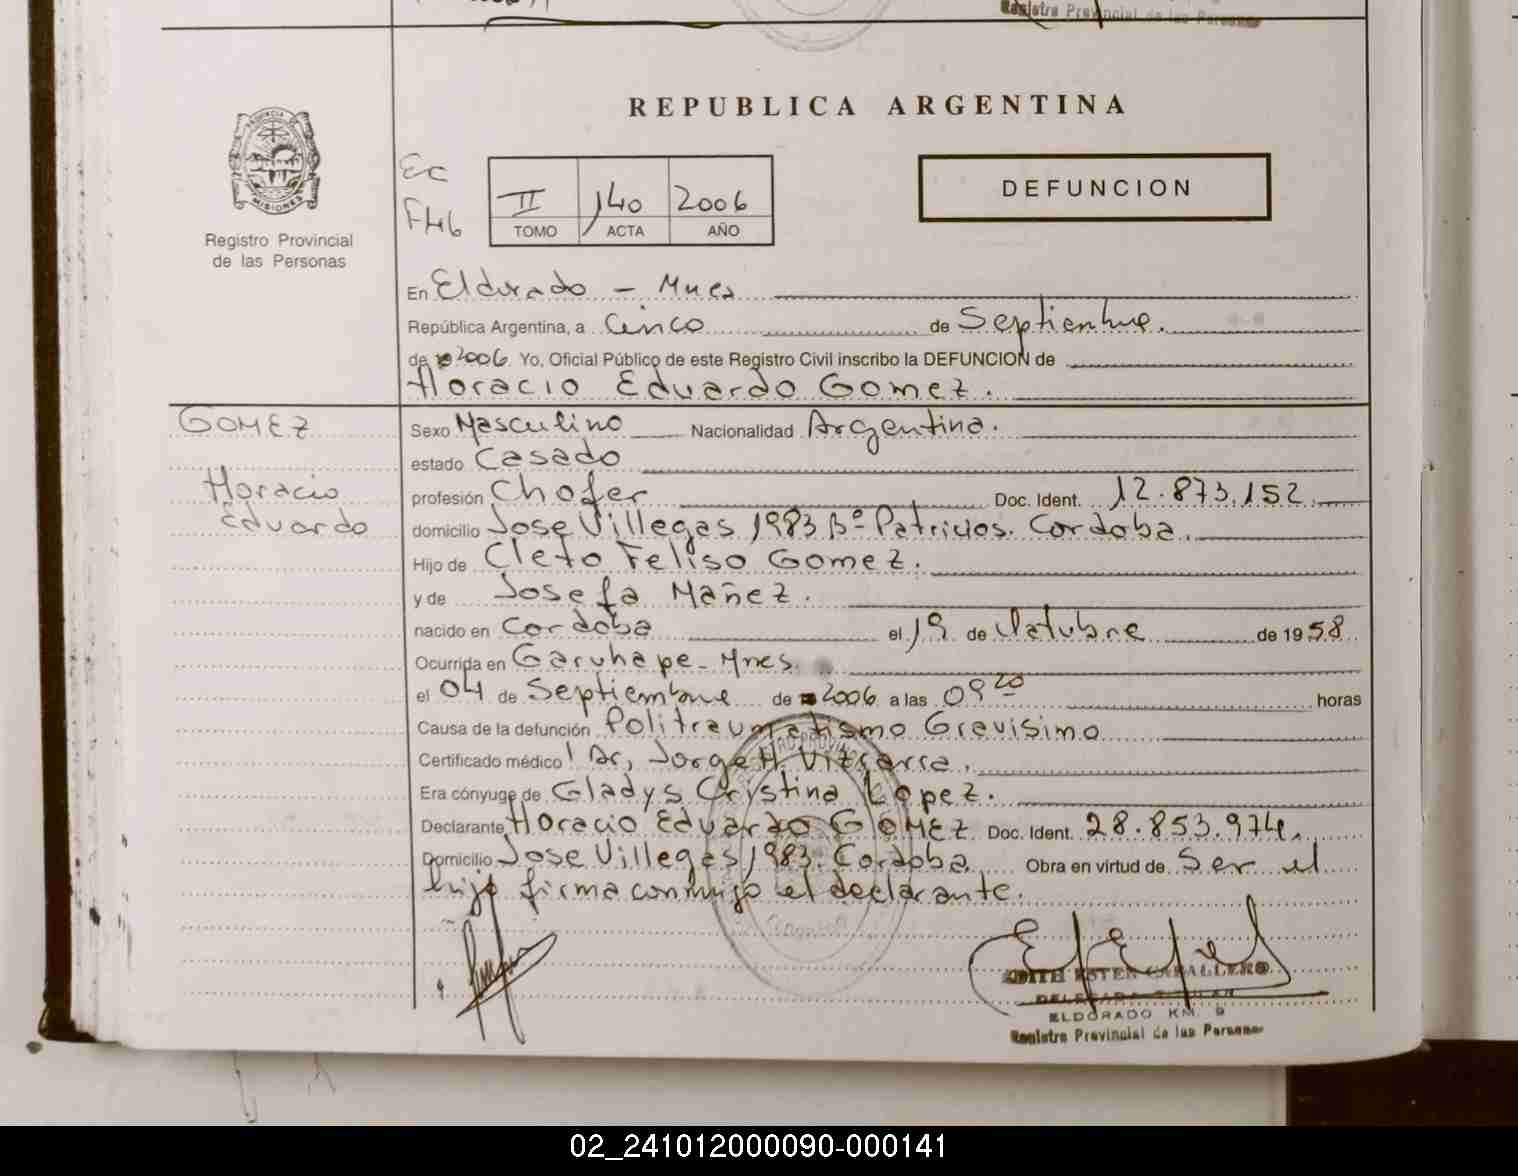 Registro Provincial de las Personas
REPUBLICA ARGENTINA
PROVINCIA DE
MISIONES
Registro Provincial
de las Personas
EC
F46
II 140 2006
TOMO ACTA AÑO
DEFUNCION
En Eldorado - Mnes
República Argentina, a Cinco de Septiembre.
de 2006. Yo, Oficial Público de este Registro Civil inscribo la DEFUNCION de
Horacio Eduardo Gomez.
GOMEZ
Horacio
Eduardo
Sexo Masculino Nacionalidad Argentina.
estado Casado
profesión Chofer Doc. Ident. 12.873.152
domicilio Jose Villegas 1983 Bº Patricios. Cordoba.
Hijo de Cleto Feliso Gomez.
y de Josefa Mañez.
nacido en Cordoba el 19 de Octubre de 1958
Ocurrida en Garuhape - Mnes
el 04 de Septiembre de 2006 a las 09 20 horas
Causa de la defunción Politraumatismo Gravisimo
Certificado médico Dr, Jorge H Vizcarra.
Era cónyuge de Gladys Cristina Lopez.
Declarante Horacio Eduardo GOMEZ Doc. Ident. 28.853.974.
Domicilio Jose Villegas 1983. Cordoba. Obra en virtud de Ser el
hijo firma conmigo el declarante.
EDITH ESTER CABALLERO
DELEGADA TITULAR
ELDORADO KM. 9
Registro Provincial de las Personas
02_241012000090-000141